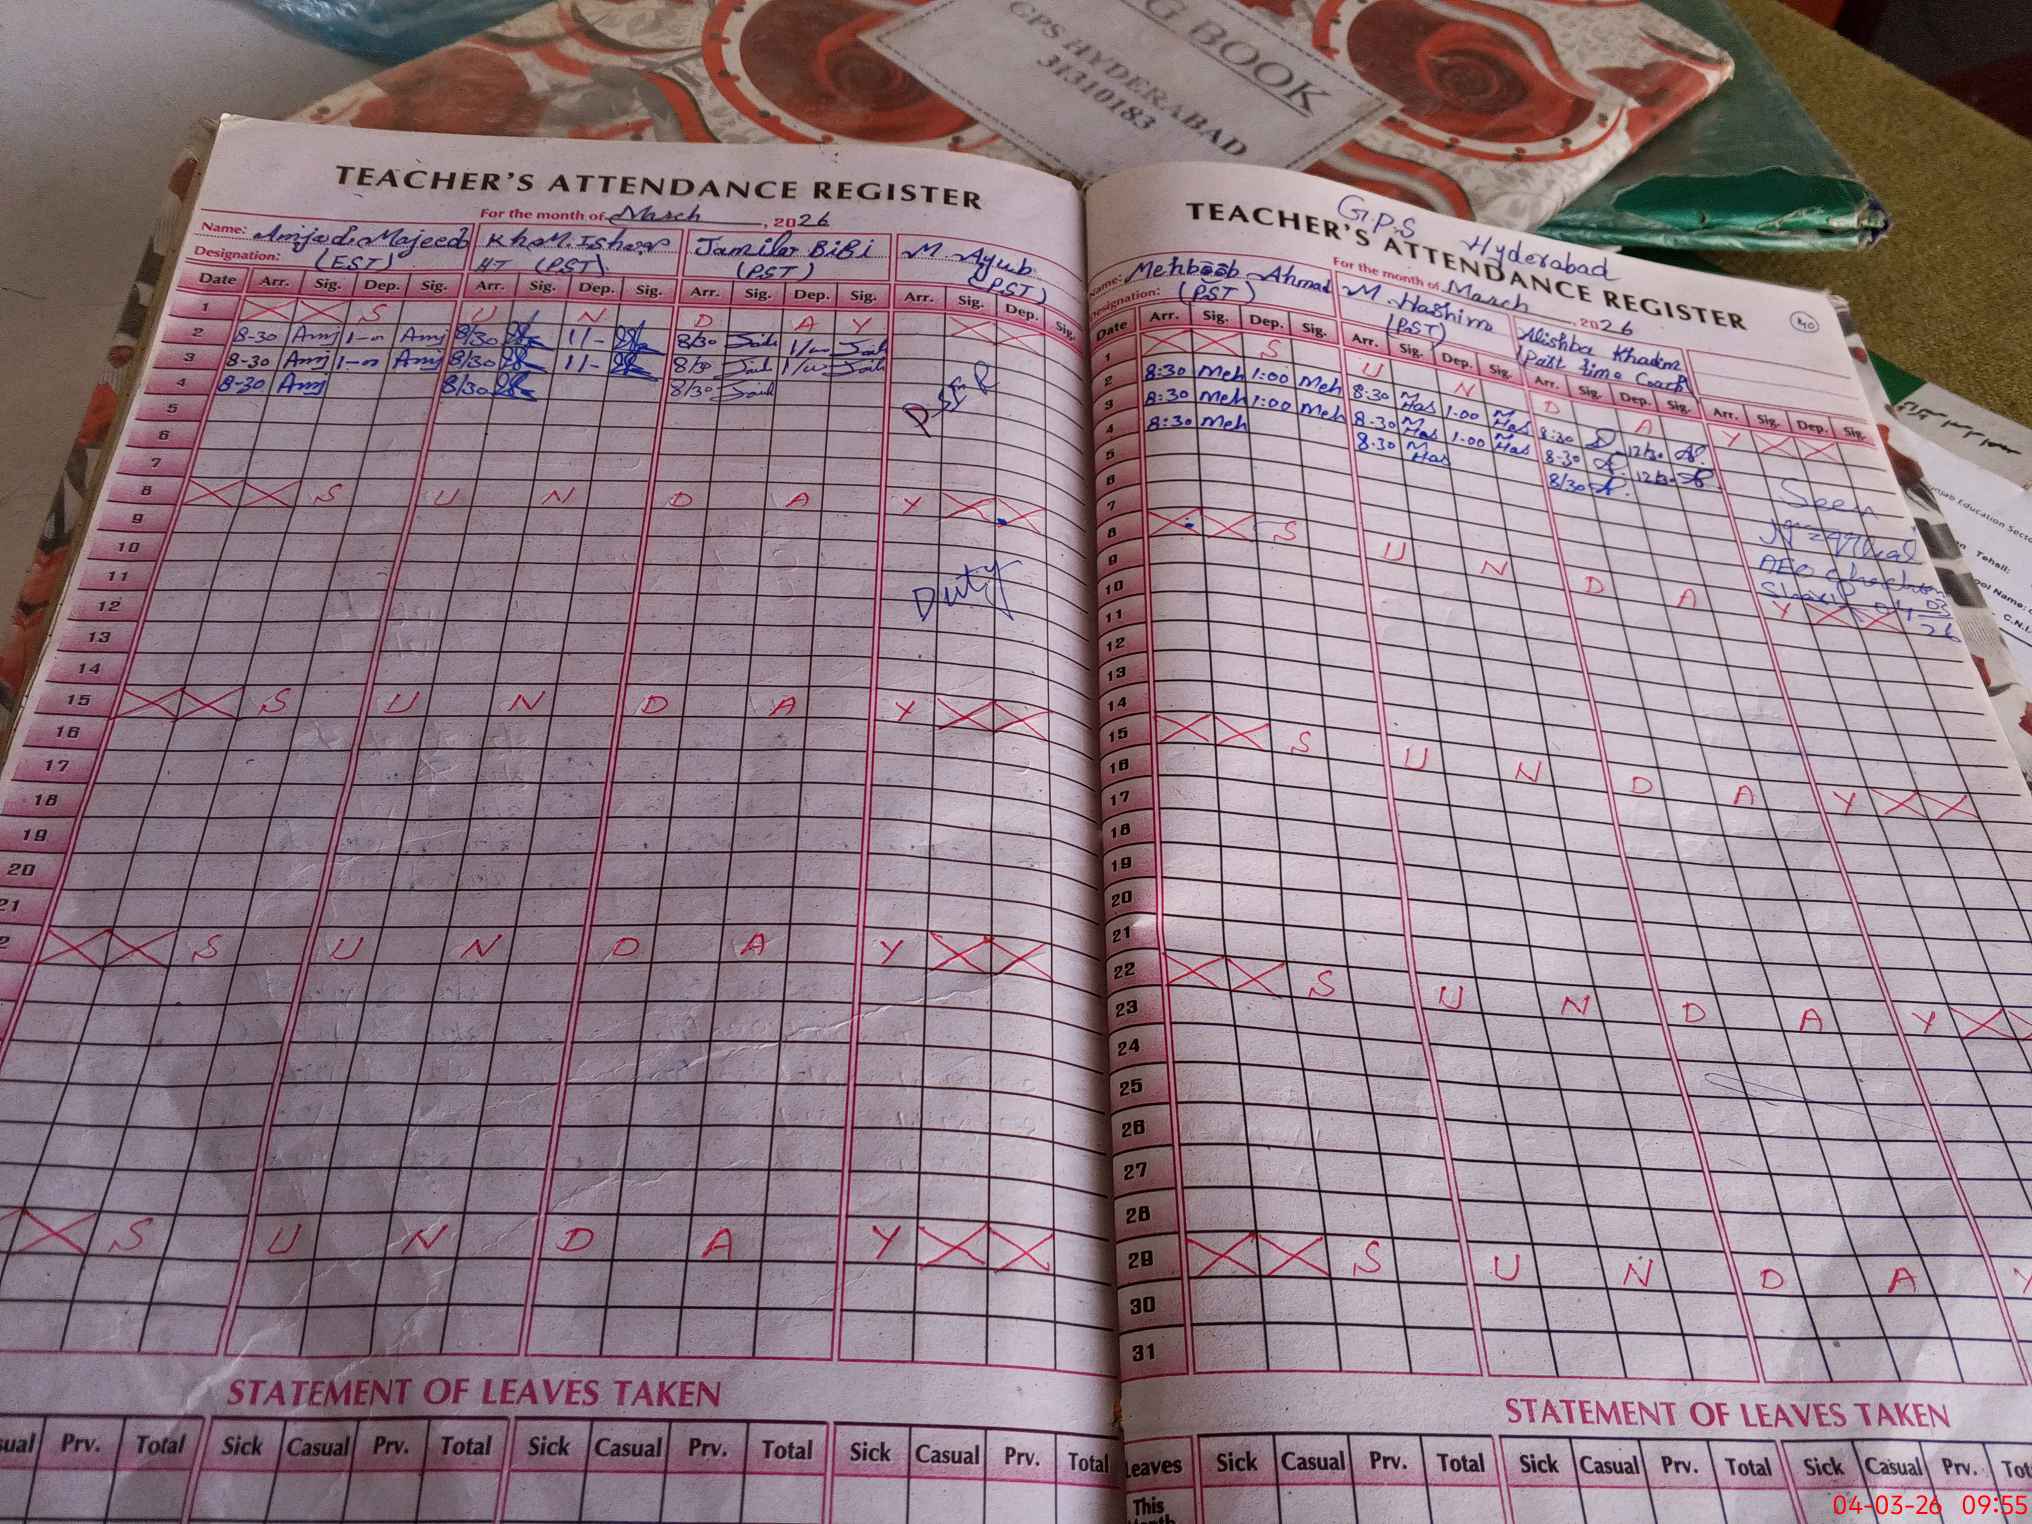 G BOOK
GPS HYDERABAD
31310183
TEACHER'S ATTENDANCE REGISTER
For the month of March, 2026
Name: Amjad Majeed Kh M. Ishaq Jamila BiBi M. Ayub
Designation: (EST) HT (PST) (PST) (PST)
Date Arr. Sig. Dep. Sig. Arr. Sig. Dep. Sig. Arr. Sig. Dep. Sig. Arr. Sig. Dep. Sig.
1 S U N D A Y
2 8-30 Amj 1-00 Amj 8/30 11- 8/30 1/00
3 8-30 Amj 1-00 Amj 8/30 11- 8/30 1/00
4 8-30 Amj 8/30 8/30
5
6
7
8 S U N D A Y
9
10
11
12 Duty
13
14
15 S U N D A Y
16
17
18
19
20
21
2 S U N D A Y
S U N D A Y
STATEMENT OF LEAVES TAKEN
sual Prv. Total Sick Casual Prv. Total Sick Casual Prv. Total Sick Casual Prv. Total
G.P.S Hyderabad
TEACHER'S ATTENDANCE REGISTER
For the month of March, 2026
Name: Mehboob Ahmad M. Hashim Alishba Khadim
Designation: (PST) (PST) (Part time Coach)
Date Arr. Sig. Dep. Sig. Arr. Sig. Dep. Sig. Arr. Sig. Dep. Sig. Arr. Sig. Dep. Sig.
1 S U N D A Y
2 8:30 Meh 1:00 Meh 8:30 M Has 1-00 M Has 8:30 12/30
3 8:30 Meh 1:00 Meh 8-30 M Has 1-00 M Has 8-30 12/30
4 8:30 Meh 8-30 M Has 8/30
5
6
7
8 S U N D A Y
9
10
11
12
13
14
15 S U N D A Y
16
17
18
19
20
21
22 S U N D A Y
23
24
25
26
27
28
29 S U N D A Y
30
31
Seen
AEO
04 03
26
STATEMENT OF LEAVES TAKEN
Leaves Sick Casual Prv. Total Sick Casual Prv. Total Sick Casual Prv. Tot
This
Education Sect
Tehsil:
ool Name:
C.N.I.
04-03-26 09:55